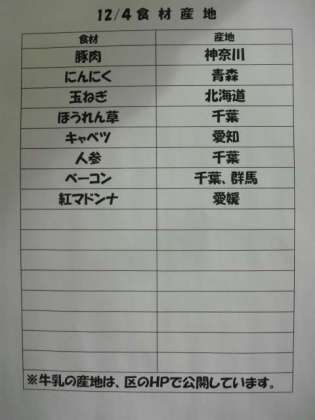 12/4食材産地
食材 産地
豚肉 神奈川
にんにく 青森
玉ねぎ 北海道
ほうれん草 千葉
キャベツ 愛知
人参 千葉
ベーコン 千葉、群馬
紅マドンナ 愛媛
※牛乳の産地は、区のHPで公開しています。